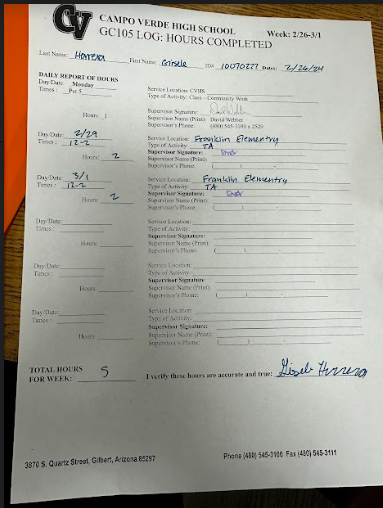 CV
CAMPO VERDE HIGH SCHOOL Week: 2/26-3/1
GC105 LOG: HOURS COMPLETED
Last Name: Herrera First Name: Giselle ID# 10070227 Date: 2/26/24
DAILY REPORT OF HOURS
Day/Date: Monday Service Location: CVHS
Times: Per 5 Type of Activity: Class - Community Work
Supervisor Signature:
Hours: 1 Supervisor Name (Print): David Webber
Supervisor's Phone: (480) 545-3100 x 2529
Day/Date: 2/29 Service Location: Franklin Elementry
Times: 12-2 Type of Activity: TA
Supervisor Signature:
Hours: 2 Supervisor Name (Print):
Supervisor's Phone: ( )
Day/Date: 3/1 Service Location: Franklin Elementry
Times: 12-2 Type of Activity: TA
Supervisor Signature:
Hours: 2 Supervisor Name (Print):
Supervisor's Phone: ( )
Day/Date: Service Location:
Times: Type of Activity:
Supervisor Signature:
Hours: Supervisor Name (Print):
Supervisor's Phone: ( )
Day/Date: Service Location:
Times: Type of Activity:
Supervisor Signature:
Hours: Supervisor Name (Print):
Supervisor's Phone: ( )
Day/Date: Service Location:
Times: Type of Activity:
Supervisor Signature:
Hours: Supervisor Name (Print):
Supervisor's Phone: ( )
TOTAL HOURS
FOR WEEK: 5 I verify these hours are accurate and true: Giselle Herrera
3870 S. Quartz Street, Gilbert, Arizona 85297 Phone (480) 545-3100 Fax (480) 545-3111